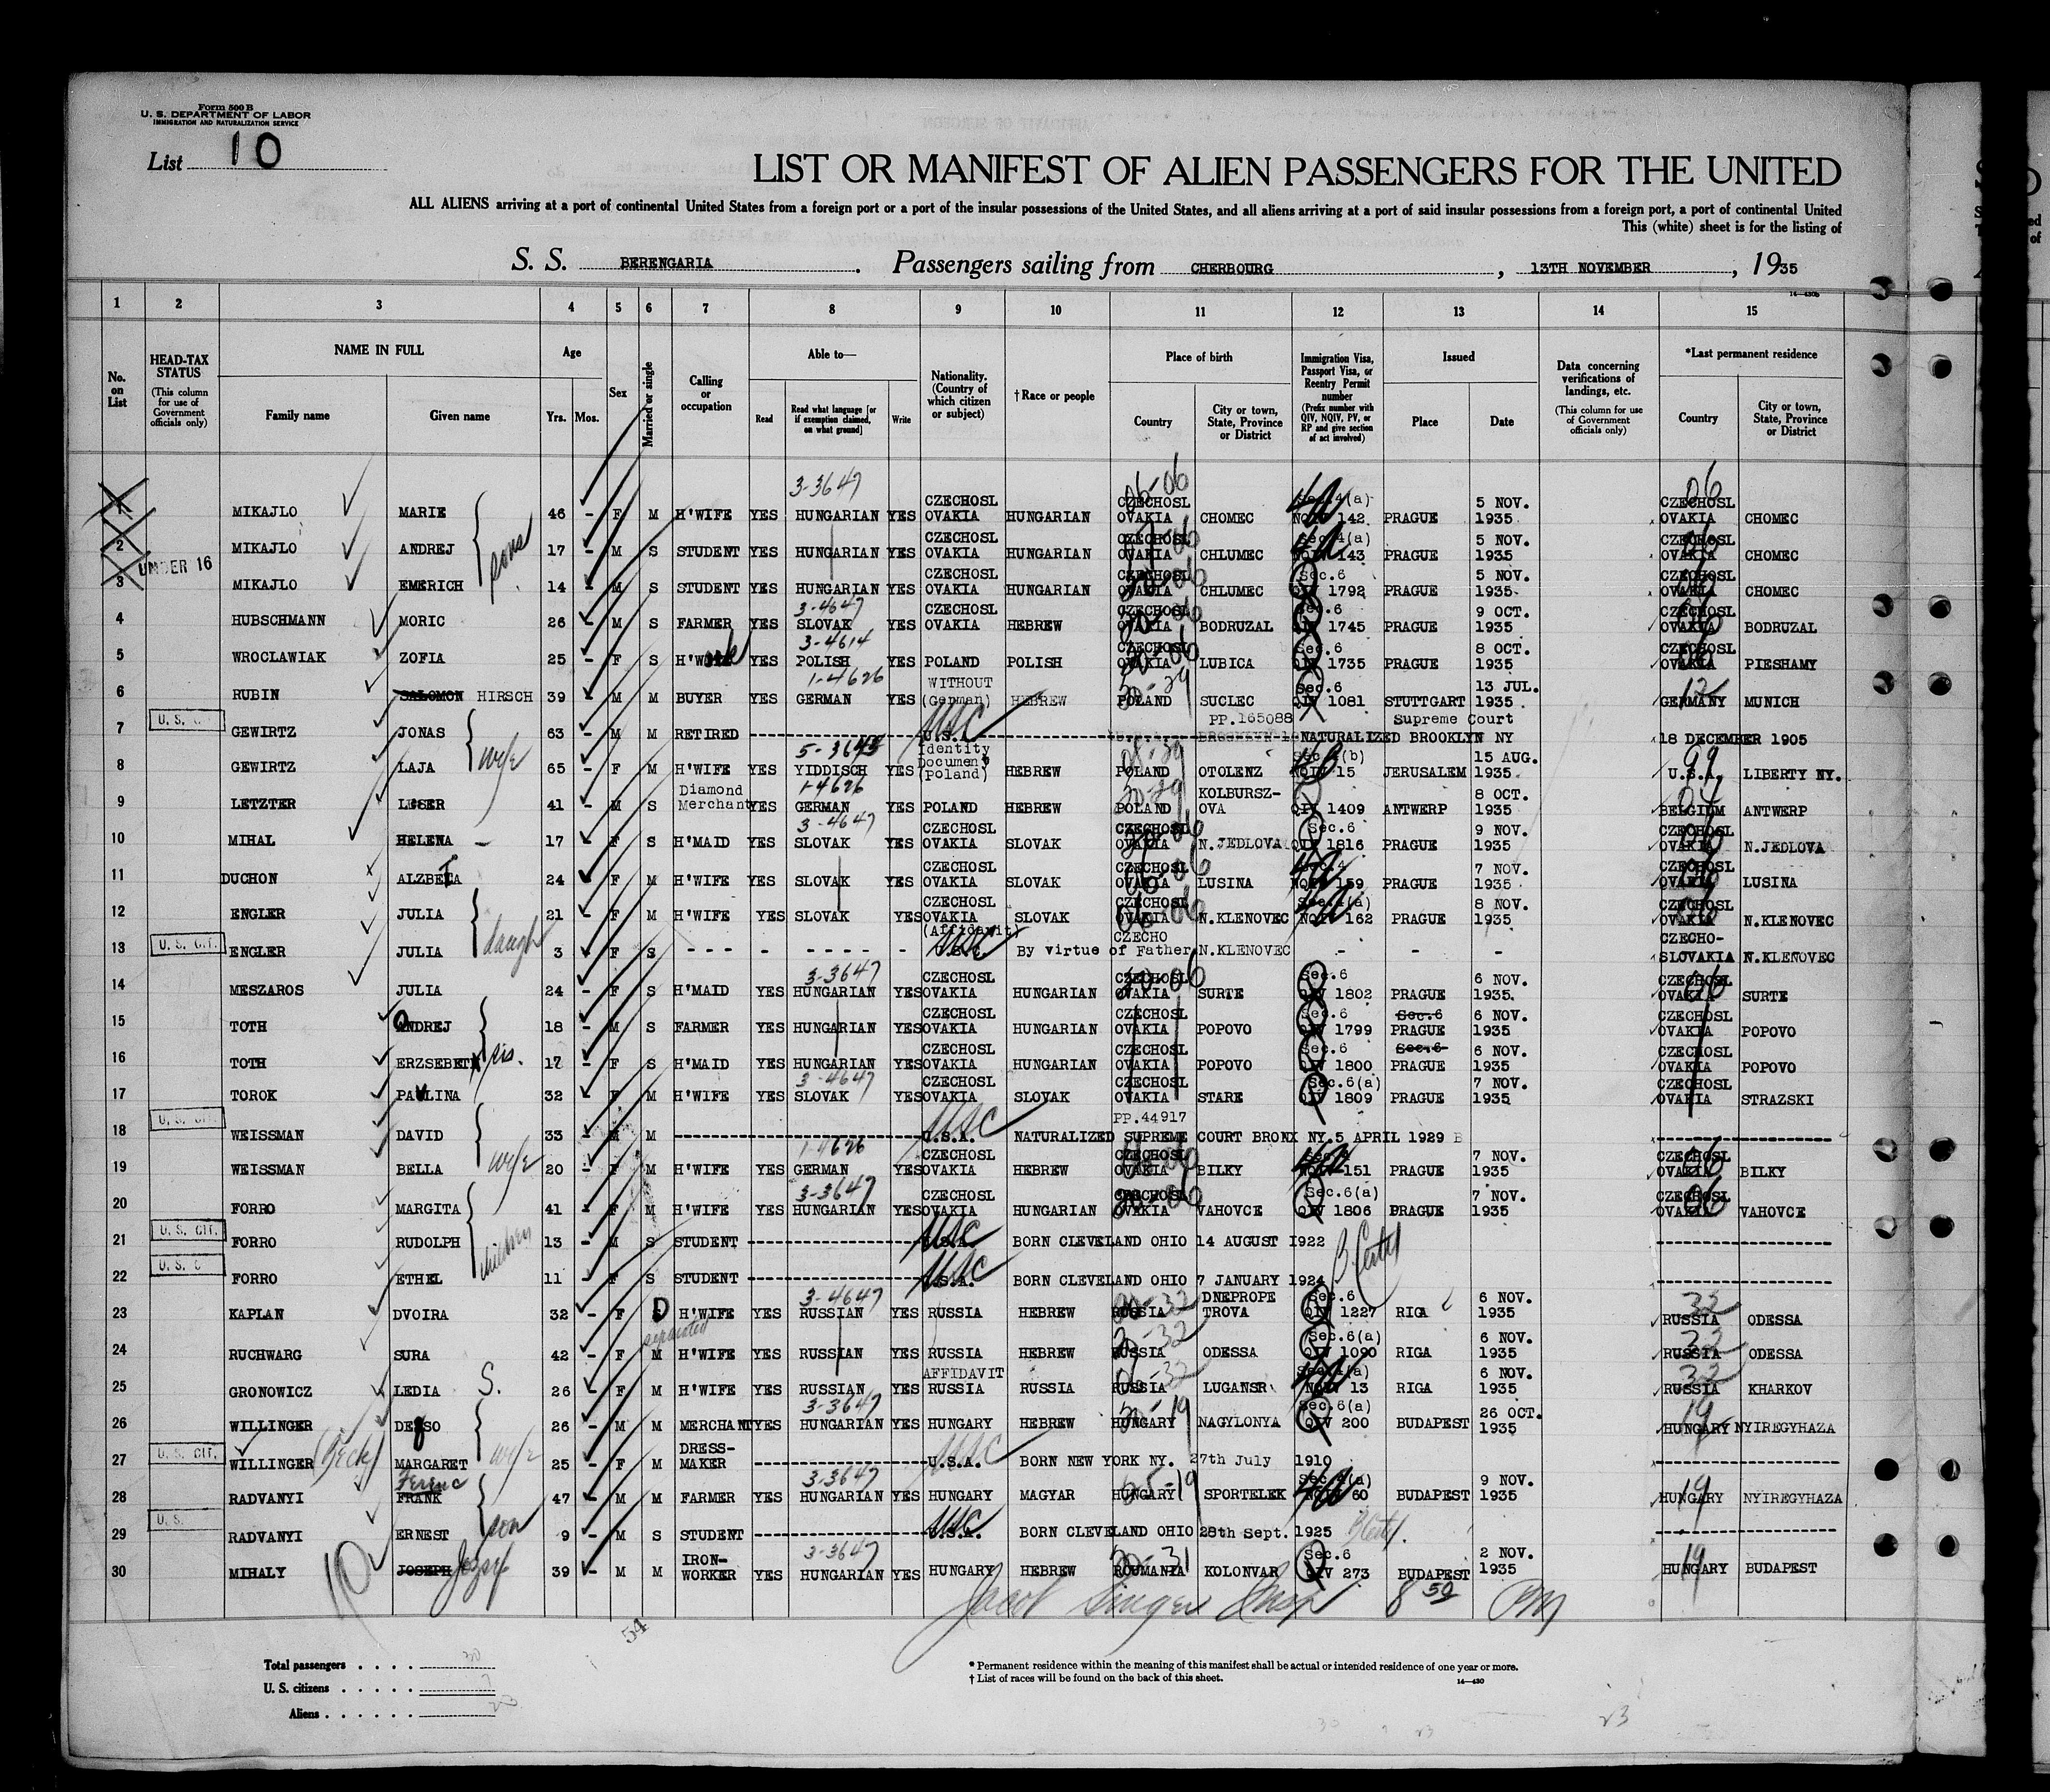 Form 500 B
U. S. DEPARTMENT OF LABOR
IMMIGRATION AND NATURALIZATION SERVICE
List 10
LIST OR MANIFEST OF ALIEN PASSENGERS FOR THE UNITED
ALL ALIENS arriving at a port of continental United States from a foreign port or a port of the insular possessions of the United States, and all aliens arriving at a port of said insular possessions from a foreign port, a port of continental United
This (white) sheet is for the listing of
S. S. BERENGARIA. Passengers sailing from CHERBOURG, 13TH NOVEMBER, 1935
1 2 3 4 5 6 7 8 9 10 11 12 13 14 15
No. on List
HEAD-TAX STATUS (This column for use of Government officials only)
NAME IN FULL Family name Given name
Age Yrs. Mos.
Sex
Married or single
Calling or occupation
Able to— Read Read what language [or if exemption claimed, on what ground] Write
Nationality. (Country of which citizen or subject)
†Race or people
Place of birth Country City or town, State, Province or District
Immigration Visa, Passport Visa, or Reentry Permit number (Prefix number with QIV, NQIV, PV, or RP and give section of act involved)
Issued Place Date
Data concerning verifications of landings, etc. (This column for use of Government officials only)
*Last permanent residence Country City or town, State, Province or District
1 MIKAJLO MARIE 46 - F M H'WIFE YES 3-3647 HUNGARIAN YES CZECHOSLOVAKIA HUNGARIAN CZECHOSLOVAKIA CHOMEC Sec.4(a) 142 PRAGUE 5 NOV. 1935 CZECHOSLOVAKIA CHOMEC
2 MIKAJLO ANDREJ sons 17 - M S STUDENT YES HUNGARIAN YES CZECHOSLOVAKIA HUNGARIAN CZECHOSLOVAKIA CHLUMEC Sec.4(a) 143 PRAGUE 5 NOV. 1935 CZECHOSLOVAKIA CHOMEC
3 UNDER 16 MIKAJLO EMERICH 14 - M S STUDENT YES HUNGARIAN YES CZECHOSLOVAKIA HUNGARIAN CZECHOSLOVAKIA CHLUMEC Sec.6 QIV 1792 PRAGUE 5 NOV. 1935 CZECHOSLOVAKIA CHOMEC
4 HUBSCHMANN MORIC 26 - M S FARMER YES 3-4647 SLOVAK YES CZECHOSLOVAKIA HEBREW CZECHOSLOVAKIA BODRUZAL Sec.6 QIV 1745 PRAGUE 9 OCT. 1935 CZECHOSLOVAKIA BODRUZAL
5 WROCLAWIAK ZOFIA 25 - F S YES 3-4614 POLISH YES POLAND POLISH CZECHOSLOVAKIA LUBICA Sec.6 QIV 1735 PRAGUE 8 OCT. 1935 CZECHOSLOVAKIA PIESHAMY
6 RUBIN SALOMON HIRSCH 39 - M M BUYER YES 1-4626 GERMAN YES WITHOUT (German) HEBREW POLAND SUCLEC Sec.6 QIV 1081 STUTTGART 13 JUL. 1935 GERMANY MUNICH
7 GEWIRTZ JONAS 63 - M M RETIRED U.S.A. USC PP.165088 NATURALIZED BROOKLYN NY Supreme Court 18 DECEMBER 1905
8 GEWIRTZ LAJA wife 65 - F M H'WIFE YES YIDDISCH YES Identity Document (Poland) HEBREW POLAND OTOLENZ 15 JERUSALEM 15 AUG. 1935 U.S.A. LIBERTY NY.
9 LETZTER LESER 41 - M S Diamond Merchant YES 1-4626 GERMAN YES POLAND HEBREW POLAND KOLBURSZ-OVA QIV 1409 ANTWERP 8 OCT. 1935 BELGIUM ANTWERP
10 MIHAL HELENA 17 - F S H'MAID YES 3-4647 SLOVAK YES CZECHOSLOVAKIA SLOVAK CZECHOSLOVAKIA N.JEDLOVA Sec.6 QIV 1816 PRAGUE 9 NOV. 1935 CZECHOSLOVAKIA N.JEDLOVA
11 DUCHON ALZBETA 24 - F M H'WIFE YES SLOVAK YES CZECHOSLOVAKIA SLOVAK CZECHOSLOVAKIA LUSINA 159 PRAGUE 7 NOV. 1935 CZECHOSLOVAKIA LUSINA
12 ENGLER JULIA 21 - F M H'WIFE YES SLOVAK YES CZECHOSLOVAKIA SLOVAK CZECHOSLOVAKIA N.KLENOVEC 162 PRAGUE 8 NOV. 1935 CZECHOSLOVAKIA N.KLENOVEC
13 U. S. CIT. ENGLER JULIA daugh 3 - F S (Affidavit) USC By virtue of Father CZECHO N.KLENOVEC - - - CZECHO-SLOVAKIA N.KLENOVEC
14 MESZAROS JULIA 24 - F S H'MAID YES 3-3647 HUNGARIAN YES CZECHOSLOVAKIA HUNGARIAN CZECHOSLOVAKIA SURTE Sec.6 QIV 1802 PRAGUE 6 NOV. 1935. CZECHOSLOVAKIA SURTE
15 TOTH ANDREJ 18 - M S FARMER YES HUNGARIAN YES CZECHOSLOVAKIA HUNGARIAN CZECHOSLOVAKIA POPOVO Sec.6 QIV 1799 Sec.6 PRAGUE 6 NOV. 1935 CZECHOSLOVAKIA POPOVO
16 TOTH ERZSEBET sis. 17 - F S H'MAID YES HUNGARIAN YES CZECHOSLOVAKIA HUNGARIAN CZECHOSLOVAKIA POPOVO Sec.6 QIV 1800 Sec.6 PRAGUE 6 NOV. 1935 CZECHOSLOVAKIA POPOVO
17 TOROK PAVLINA 32 - F M H'WIFE YES 3-4647 SLOVAK YES CZECHOSLOVAKIA SLOVAK CZECHOSLOVAKIA STARE Sec.6(a) QIV 1809 PRAGUE 7 NOV. 1935 CZECHOSLOVAKIA STRAZSKI
18 WEISSMAN DAVID 33 - M M U.S.A. USC PP.44917 NATURALIZED SUPREME COURT BRONX NY. 5 APRIL 1929
19 WEISSMAN BELLA wife 20 - F M H'WIFE YES 1-4626 GERMAN YES CZECHOSLOVAKIA HEBREW CZECHOSLOVAKIA BILKY 151 PRAGUE 7 NOV. 1935 CZECHOSLOVAKIA BILKY
20 FORRO MARGITA 41 - F M H'WIFE YES 3-3647 HUNGARIAN YES CZECHOSLOVAKIA HUNGARIAN CZECHOSLOVAKIA VAHOVCE Sec.6(a) QIV 1806 PRAGUE 7 NOV. 1935 CZECHOSLOVAKIA VAHOVCE
21 U. S. CIT. FORRO RUDOLPH children 13 - M S STUDENT U.S.A. USC BORN CLEVELAND OHIO 14 AUGUST 1922
22 FORRO ETHEL 11 - F S STUDENT U.S.A. USC BORN CLEVELAND OHIO 7 JANUARY 1924
23 KAPLAN DVOIRA 32 - F D H'WIFE YES 3-4647 RUSSIAN YES RUSSIA HEBREW RUSSIA DNEPROPE TROVA Sec.6 QIV 1227 RIGA 6 NOV. 1935 RUSSIA ODESSA
24 RUCHWARG SURA 42 - F M separated H'WIFE YES RUSSIAN YES RUSSIA HEBREW RUSSIA ODESSA Sec.6(a) QIV 1090 RIGA 6 NOV. 1935 RUSSIA ODESSA
25 GRONOWICZ LEDIA S. 26 - F M H'WIFE YES RUSSIAN YES AFFIDAVIT RUSSIA RUSSIA RUSSIA LUGANSK 13 RIGA 6 NOV. 1935 RUSSIA KHARKOV
26 WILLINGER 26 - M M MERCHANT YES 3-3647 HUNGARIAN YES HUNGARY HEBREW HUNGARY NAGYLONYA Sec.6(a) QIV 200 BUDAPEST 26 OCT. 1935 HUNGARY NYIREGYHAZA
27 U. S. CIT. WILLINGER MARGARET wife 25 - F M DRESS-MAKER U.S.A. USC BORN NEW YORK NY. 27th July 1910
28 RADVANYI FRANK Ferenc 47 - M M FARMER YES 3-3647 HUNGARIAN YES HUNGARY MAGYAR HUNGARY SPORTELEK 60 BUDAPEST 9 NOV. 1935 HUNGARY NYIREGYHAZA
29 RADVANYI ERNEST son 9 - M S STUDENT U.S.A. USC BORN CLEVELAND OHIO 28th Sept. 1925
30 MIHALY JOSEPH Jozsef 39 - M M IRON-WORKER YES 3-3647 HUNGARIAN YES HUNGARY HEBREW ROUMANIA KOLONVAR Sec.6 QIV 273 BUDAPEST 2 NOV. 1935 HUNGARY BUDAPEST
Jacob Singer Insp 8 50 PM
54
Total passengers 30
U. S. citizens 7
Aliens 23
* Permanent residence within the meaning of this manifest shall be actual or intended residence of one year or more.
† List of races will be found on the back of this sheet.
14—430
23